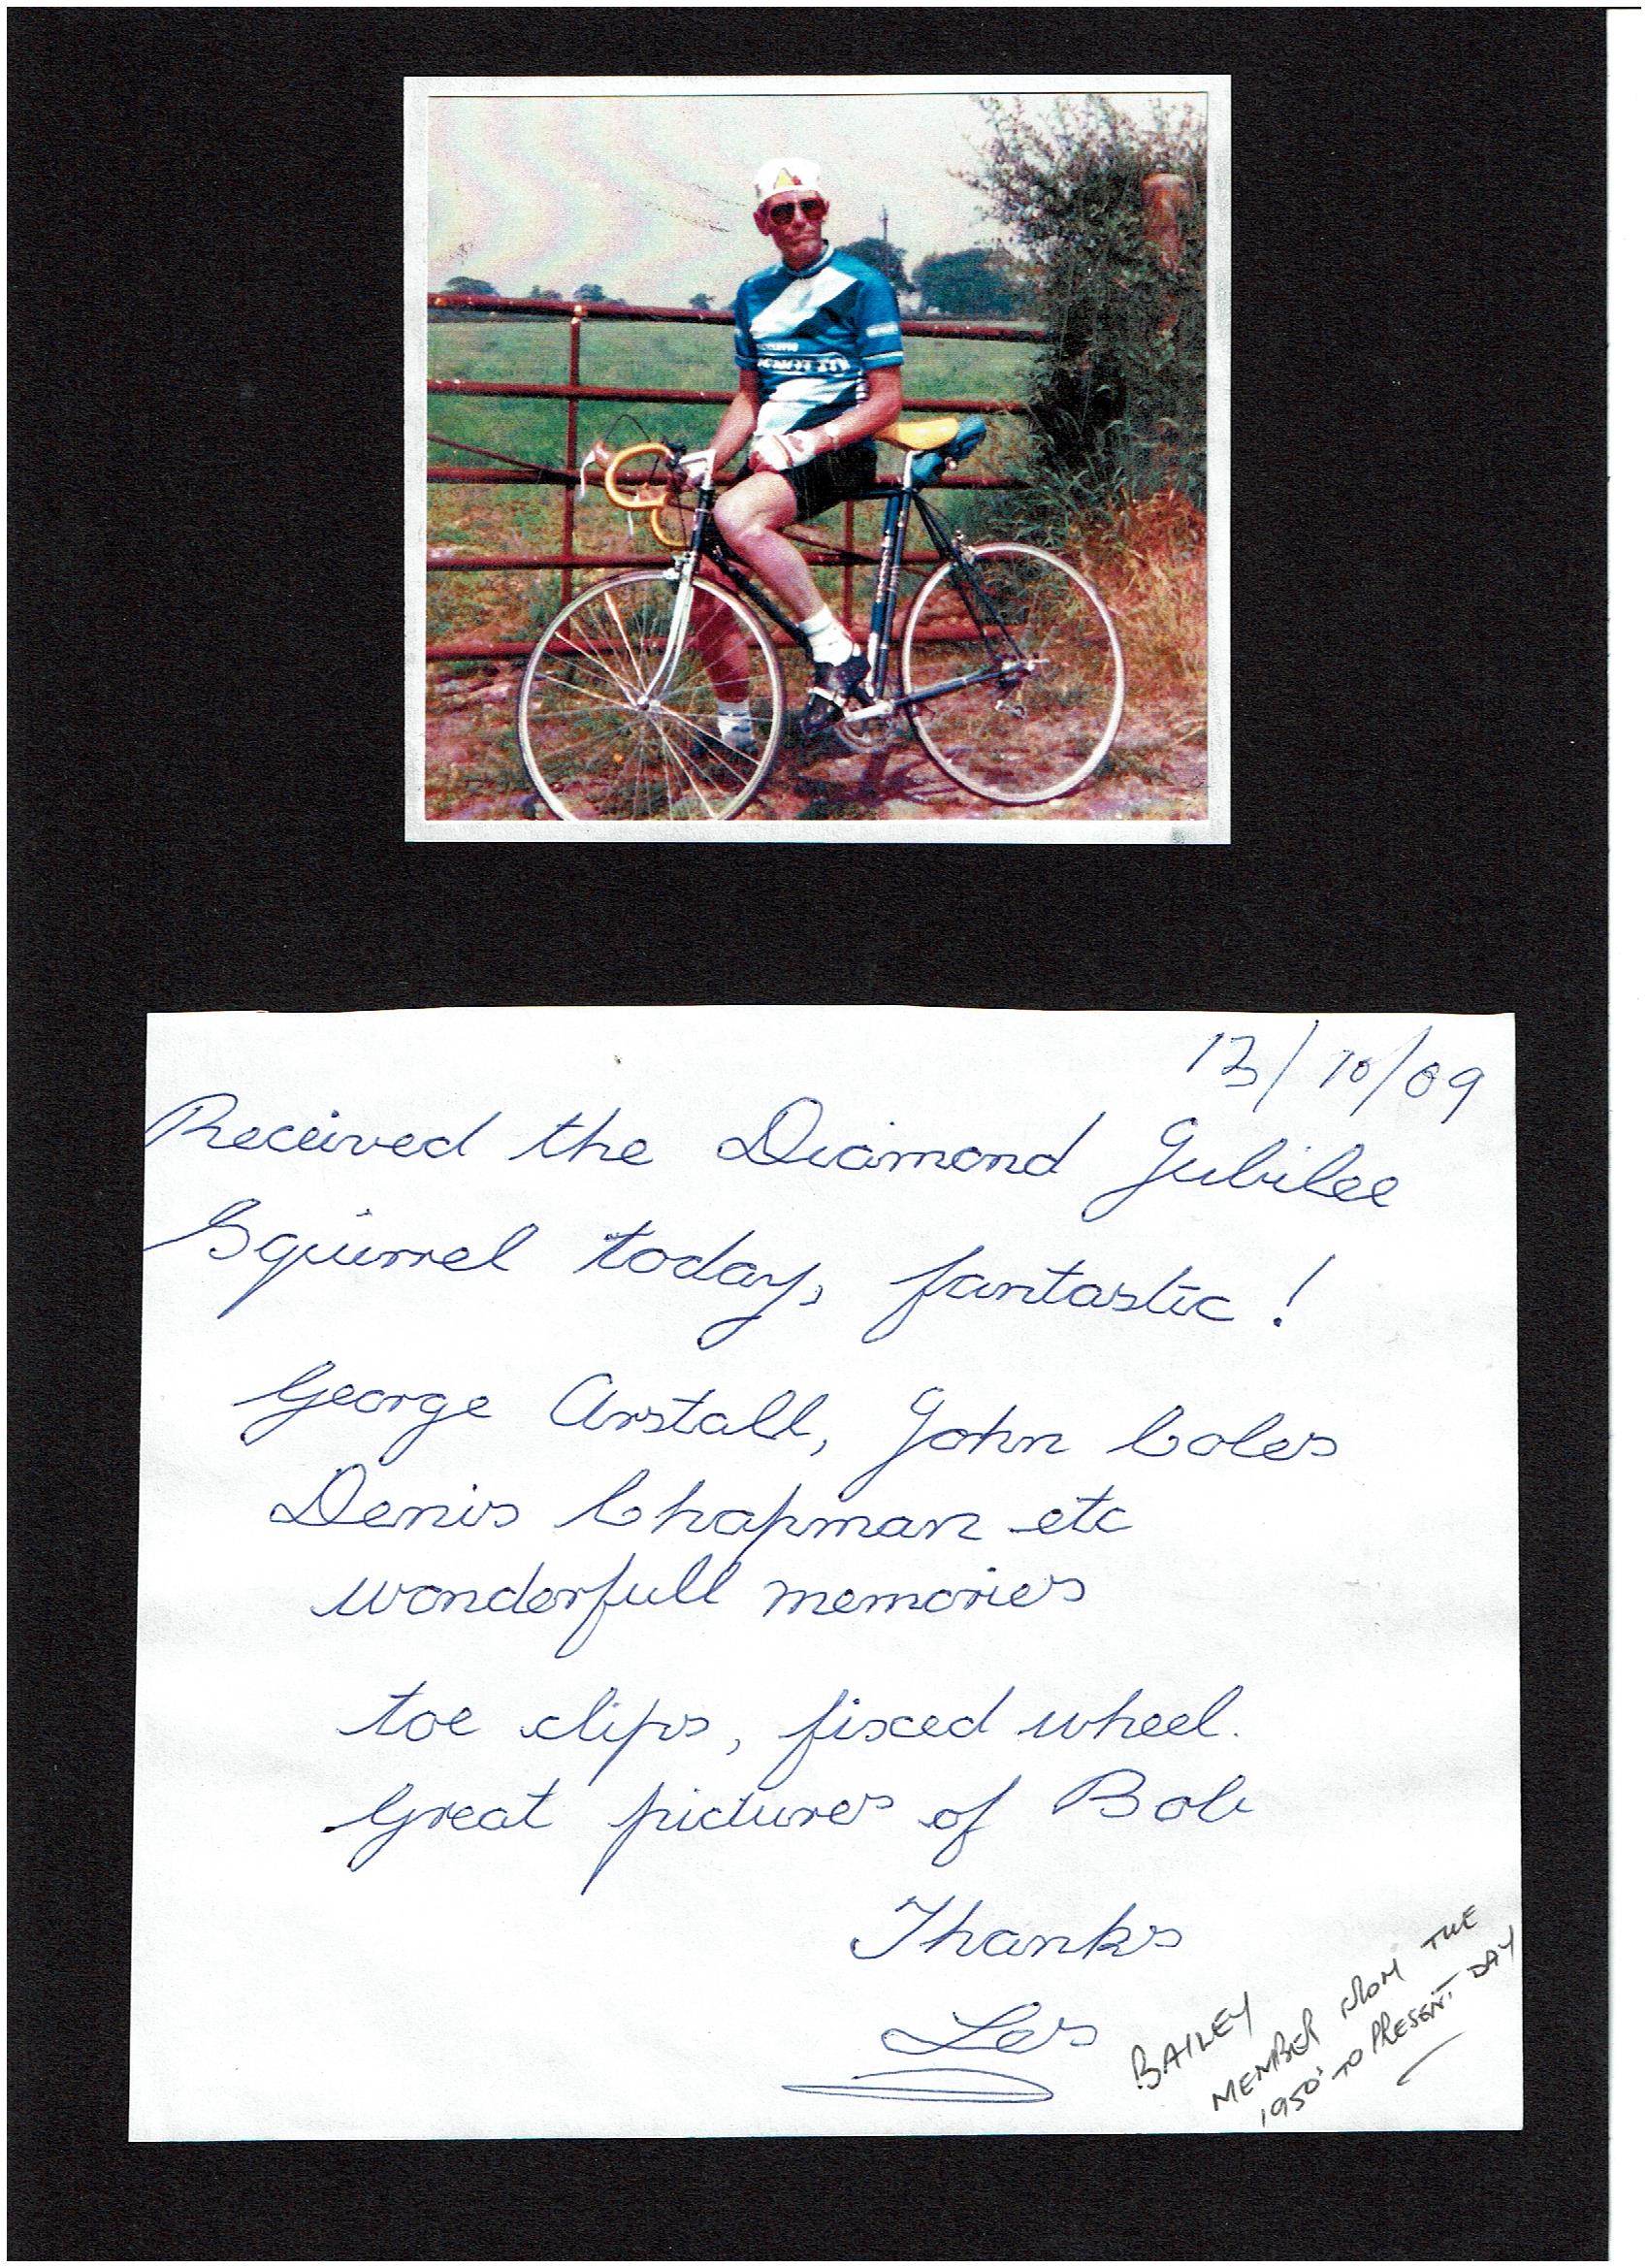 13/10/09
Received the Diamond Jubilee
Squirrel today, fantastic!
George Arstall, John Coles
Denis Chapman etc
wonderfull memories
toe clips, fixed wheel.
Great pictures of Bob
Thanks
Les
BAILEY
MEMBER FROM THE
1950' TO PRESENT DAY